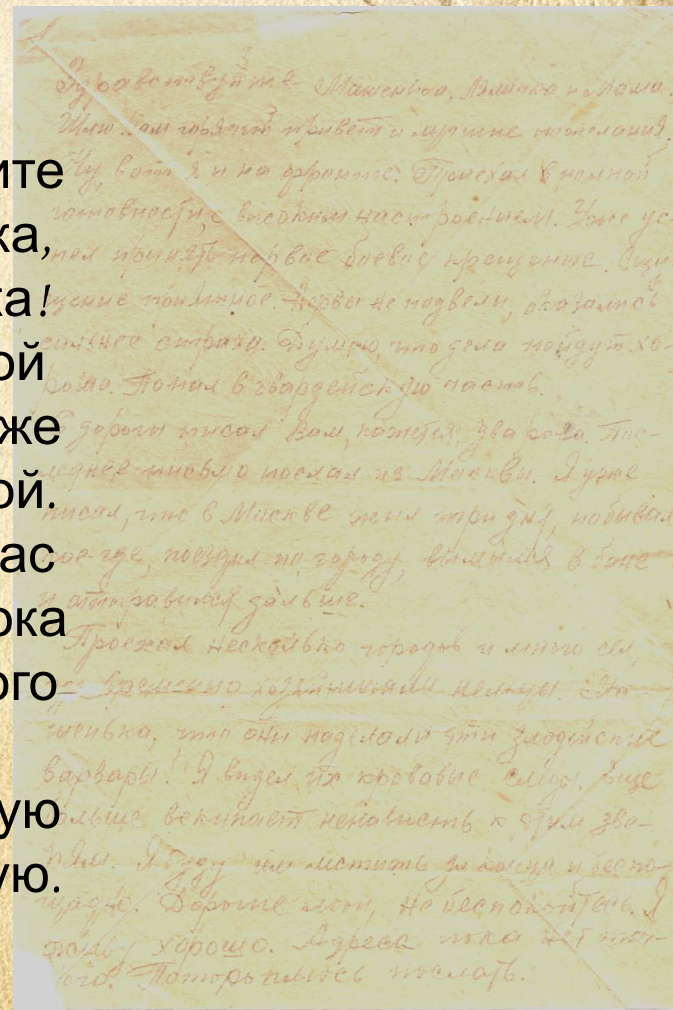 ите
ка,
ка!
ой
же
ой.
ас
ока
ого
ую
ую.
Здравствуйте Машенька, Лялика и Мама.
Шлю Вам горячий привет и лучшие пожелания.
Ну, вот я и на фронте. Приехал в полной
готовности, с высоким настроением. Уже ус-
пел принять первое боевое крещение. Ощу-
щение приятное. Нервы не подвели, оказались
сильнее страха. Думаю, что дела пойдут хо-
рошо. Попал в гвардейскую часть.
С дороги писал Вам, кажется, два раза. Пос-
леднее письмо послал из Москвы. Я уже
писал, что в Москве жил три дня, побывал
кое-где, поездил по городу, вымылся в бане
и отправился дальше.
Проехал несколько городов и много сел,
где временно хозяйничали немцы.
что они наделали эти злодейские
варвары! Я видел их кровавые следы. Еще
больше вскипает ненависть к этим зве-
рям. Я буду им мстить до конца и беспо-
щадно. Дорогие мои, не беспокойтесь. Я
живу хорошо. Адреса пока нет точ-
ного. Потороплюсь послать.